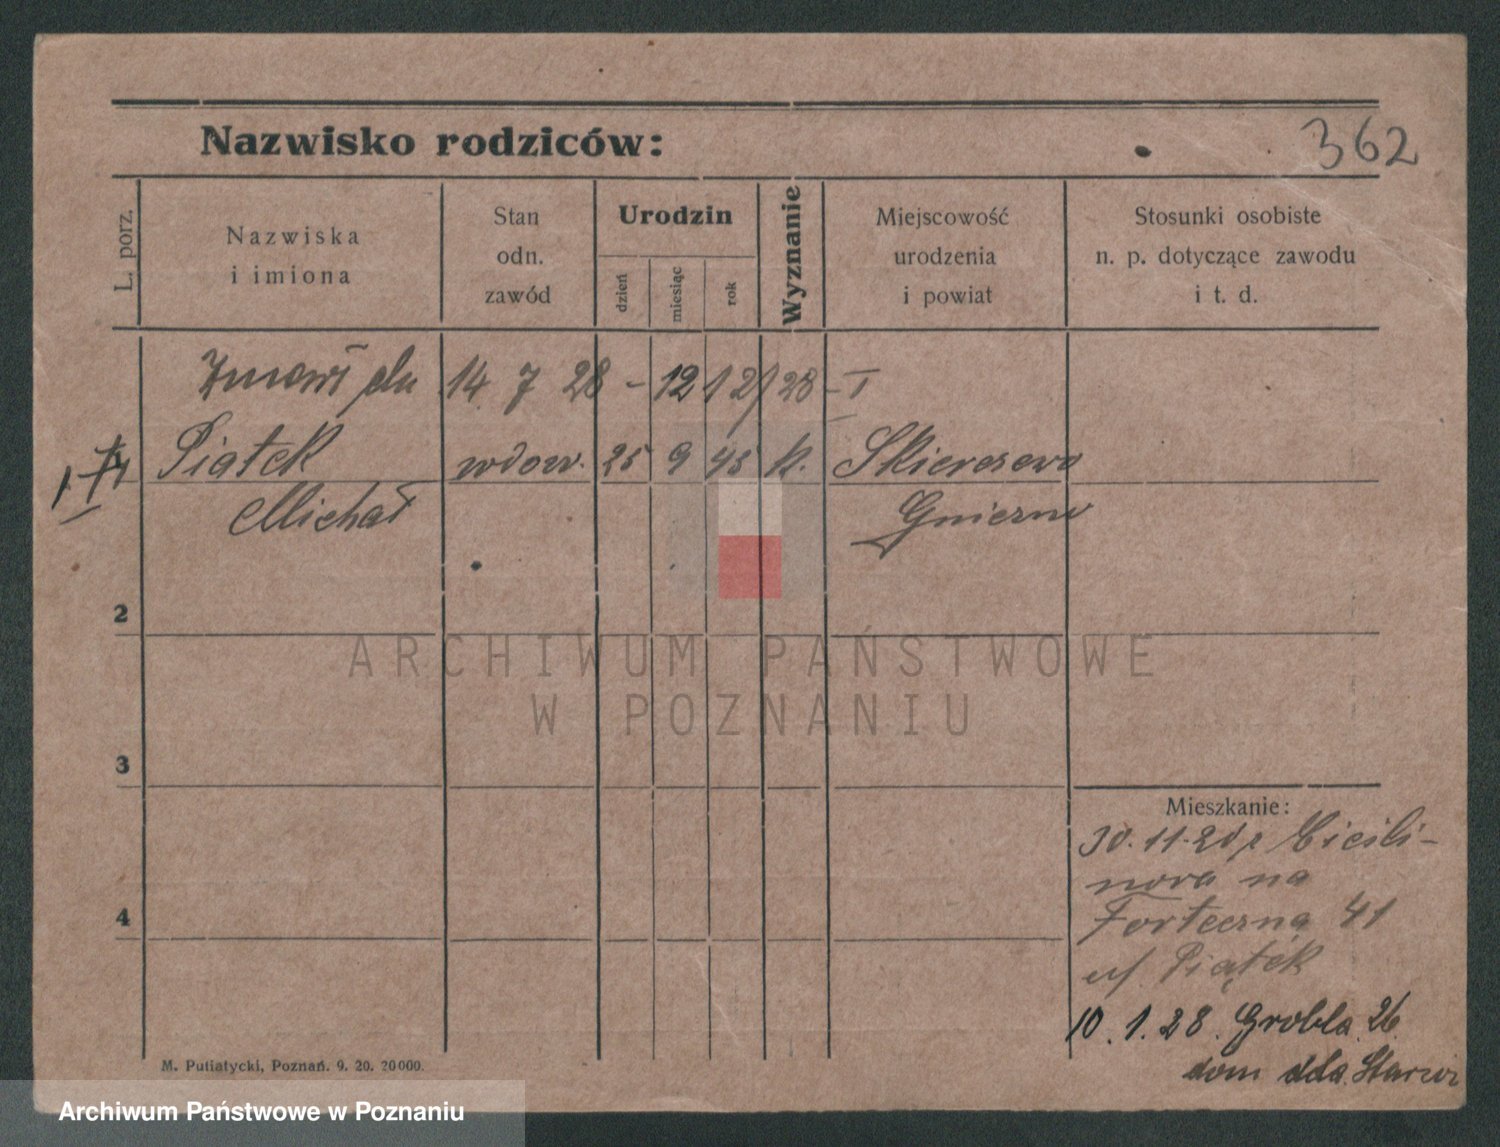 Nazwisko rodziców:
362
L. porz.
Nazwiska
i imiona
Stan
odn.
zawód
Urodzin
dzień
miesiąc
rok
Wyznanie
Miejscowość
urodzenia
i powiat
Stosunki osobiste
n. p. dotyczące zawodu
i t. d.
Zmarł dn 14 7 28 - 12121/28 - I
Piątek wdow. 25 9 45 k.
Michał
2
3
4
ARCHIWUM PAŃSTWOWE
W POZNANIU
Mieszkanie:
Forteczna 41
Piątek
10.1.28. Grobla 26
dom dla
M. Putiatycki, Poznań. 9. 20. 20000.
Archiwum Państwowe w Poznaniu